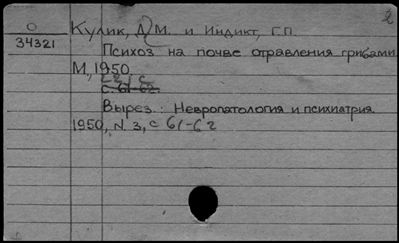 О
34321
Кулик, Д.М. и Индикт, Г.П.
Психоз на почве отравления грибами.
М, 1950
22, с.
с. 61-62.
Вырез.: Невропатология и психиатрия.
1950, N. 3, с 61-62